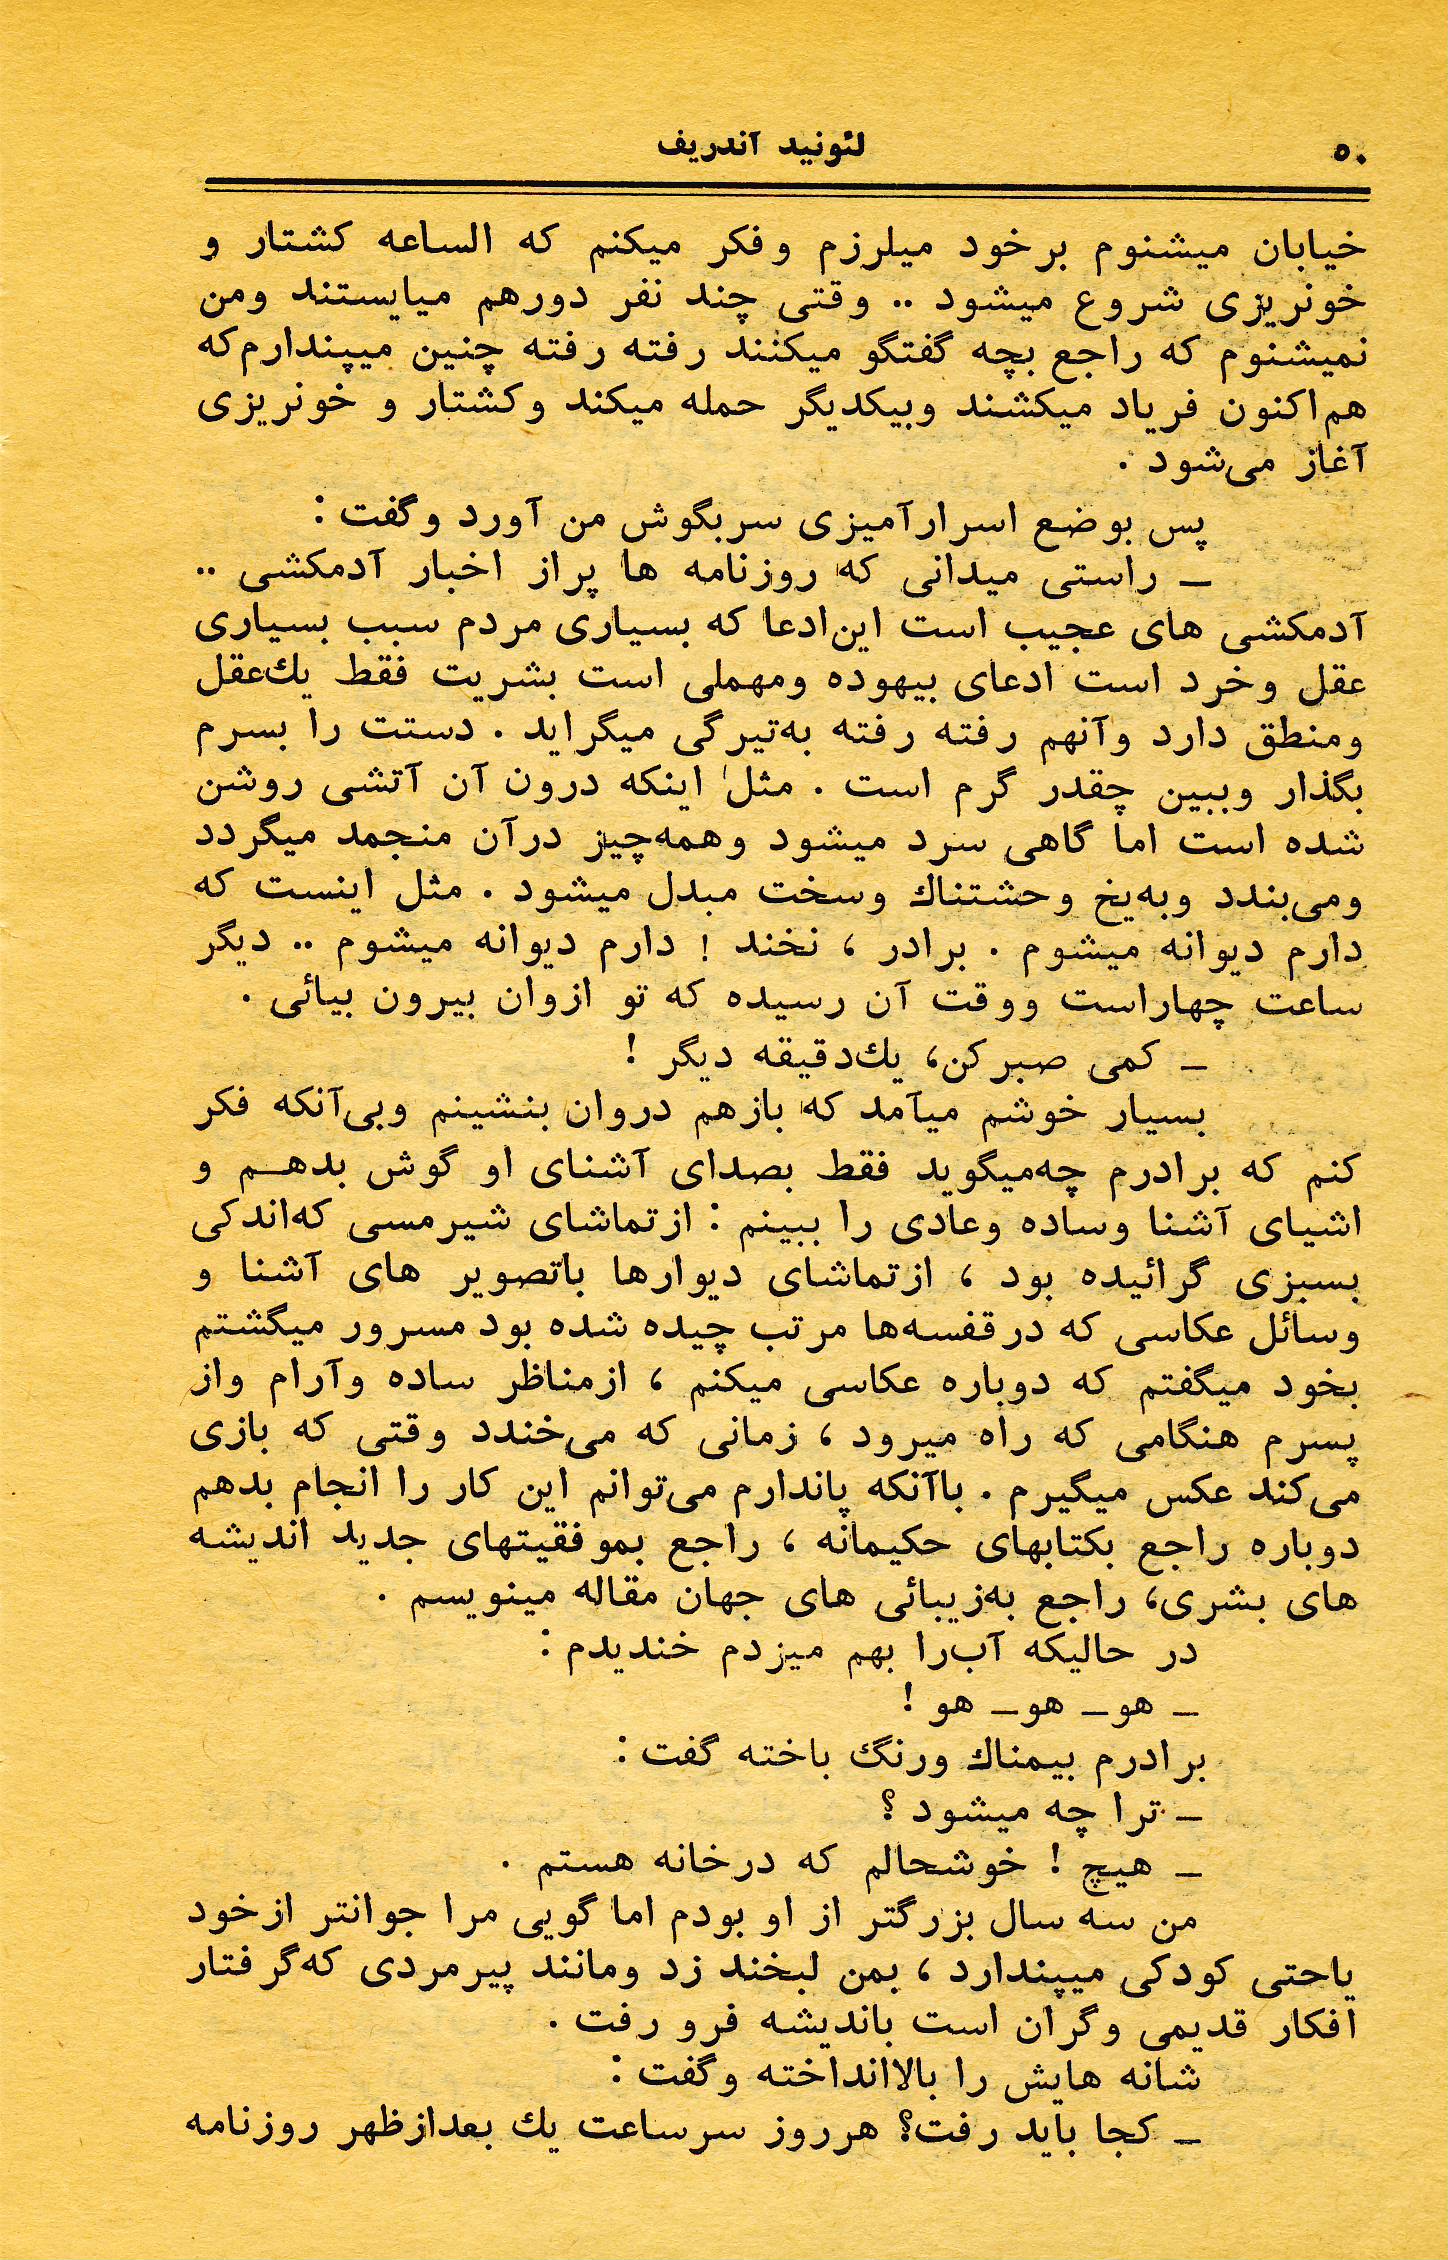 ۵۰
لئونید آندریف
خیابان میشنوم برخود میلرزم وفکر میکنم که الساعه کشتار و
خونریزی شروع میشود .. وقتی چند نفر دورهم میایستند ومن
نمیشنوم که راجع بچه گفتگو میکنند رفته رفته چنین میپندارم که
هم‌اکنون فریاد میکشند وبیکدیگر حمله میکند وکشتار و خونریزی
آغاز می‌شود .
پس بوضع اسرارآمیزی سربگوش من آورد وگفت :
ــ راستی میدانی که روزنامه ها پراز اخبار آدمکشی ..
آدمکشی های عجیب است این‌ادعا که بسیاری مردم سبب بسیاری
عقل وخرد است ادعای بیهوده ومهملی است بشریت فقط یك‌عقل
ومنطق دارد وآنهم رفته رفته به‌تیرگی میگراید . دستت را بسرم
بگذار وببین چقدر گرم است . مثل اینکه درون آن آتشی روشن
شده است اما گاهی سرد میشود وهمه‌چیز درآن منجمد میگردد
ومی‌بندد وبه‌یخ وحشتناك وسخت مبدل میشود . مثل اینست که
دارم دیوانه میشوم . برادر ، نخند ! دارم دیوانه میشوم .. دیگر
ساعت چهاراست ووقت آن رسیده که تو ازوان بیرون بیائی .
ــ کمی صبرکن، یك‌دقیقه دیگر !
بسیار خوشم میآمد که بازهم دروان بنشینم وبی‌آنکه فکر
کنم که برادرم چه‌میگوید فقط بصدای آشنای او گوش بدهـم و
اشیای آشنا وساده وعادی را ببینم : ازتماشای شیرمسی که‌اندکی
بسبزی گرائیده بود ، ازتماشای دیوارها باتصویر های آشنا و
وسائل عکاسی که درقفسه‌ها مرتب چیده شده بود مسرور میگشتم
بخود میگفتم که دوباره عکاسی میکنم ، ازمناظر ساده وآرام واز
پسرم هنگامی که راه میرود ، زمانی که می‌خندد وقتی که بازی
می‌کند عکس میگیرم . باآنکه پاندارم می‌توانم این کار را انجام بدهم
دوباره راجع بکتابهای حکیمانه ، راجع بموفقیتهای جدید اندیشه
های بشری، راجع به‌زیبائی های جهان مقاله مینویسم .
در حالیکه آب‌را بهم میزدم خندیدم :
ــ هو ــ هو ــ هو !
برادرم بیمناك ورنگ باخته گفت :
ــ ترا چه میشود ؟
ــ هیچ ! خوشحالم که درخانه هستم .
من سه سال بزرگتر از او بودم اما گویی مرا جوانتر ازخود
یاحتی کودکی میپندارد ، بمن لبخند زد ومانند پیرمردی که‌گرفتار
افکار قدیمی وگران است باندیشه فرو رفت .
شانه هایش را بالاانداخته وگفت :
ــ کجا باید رفت؟ هرروز سرساعت یك بعدازظهر روزنامه